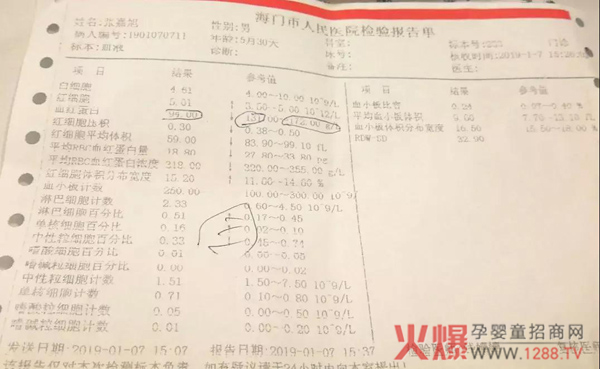 海门市人民医院检验报告单
姓名: 性别:男
病人编号:1901070711 年龄:5月30天
标本:血常 诊断: 床号: 备注: 标本号: 门诊
接收时间:2019-1-7 15:26 医生:
项目 结果 参考值 项目 结果 参考值
白细胞 4.61 4.00--10.00 10^9/L 血小板比容 0.24
红细胞 5.01 3.50--5.00 10^12/L 平均血小板体积 9.60
血红蛋白 94.00 131.00--172.00 g/L 血小板体积分布宽度 16.50 15.50--18.00 %
红细胞压积 0.30 0.38--0.50 RDW-SD 32.90
红细胞平均体积 59.00 83.90--99.10 fL
平均RBC血红蛋白量 18.80 27.80--33.80 pg
平均RBC血红蛋白浓度 318.00 320.00--355.00 g/L
红细胞体积分布宽度 15.20 11.60--14.60 %
血小板计数 250.00 100.00--300.00 10^9/L
淋巴细胞计数 2.33 0.60--4.50 10^9/L
淋巴细胞百分比 0.51 0.17--0.45
单核细胞百分比 0.16 0.02--0.10
中性粒细胞百分比 0.33 0.45--0.74
嗜酸粒细胞百分比 0.01 0.00--0.05
嗜碱粒细胞百分比 0.00 0.00--0.02
中性粒细胞计数 1.51 1.50--7.50 10^9/L
单核细胞计数 0.71 0.10--0.80 10^9/L
嗜酸粒细胞计数 0.05 0.00--0.50 10^9/L
嗜碱粒细胞计数 0.01 0.00--0.20 10^9/L
发送日期 2019-01-07 15:07 报告日期 2019-01-07 15:37
火爆孕婴童招商网
www.1288.TV